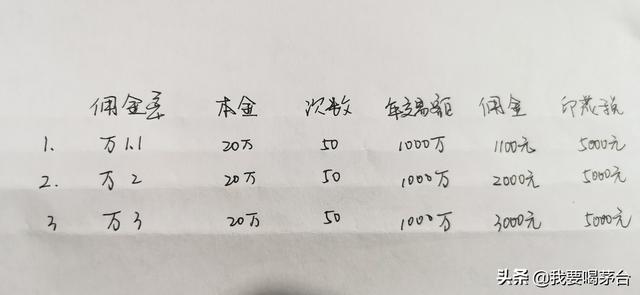 佣金率 本金 次数 年交易额 佣金 印花税
1. 万1.1 20万 50 1000万 1100元 5000元
2. 万2 20万 50 1000万 2000元 5000元
3 万3 20万 50 1000万 3000元 5000元
头条 @我要喝茅台